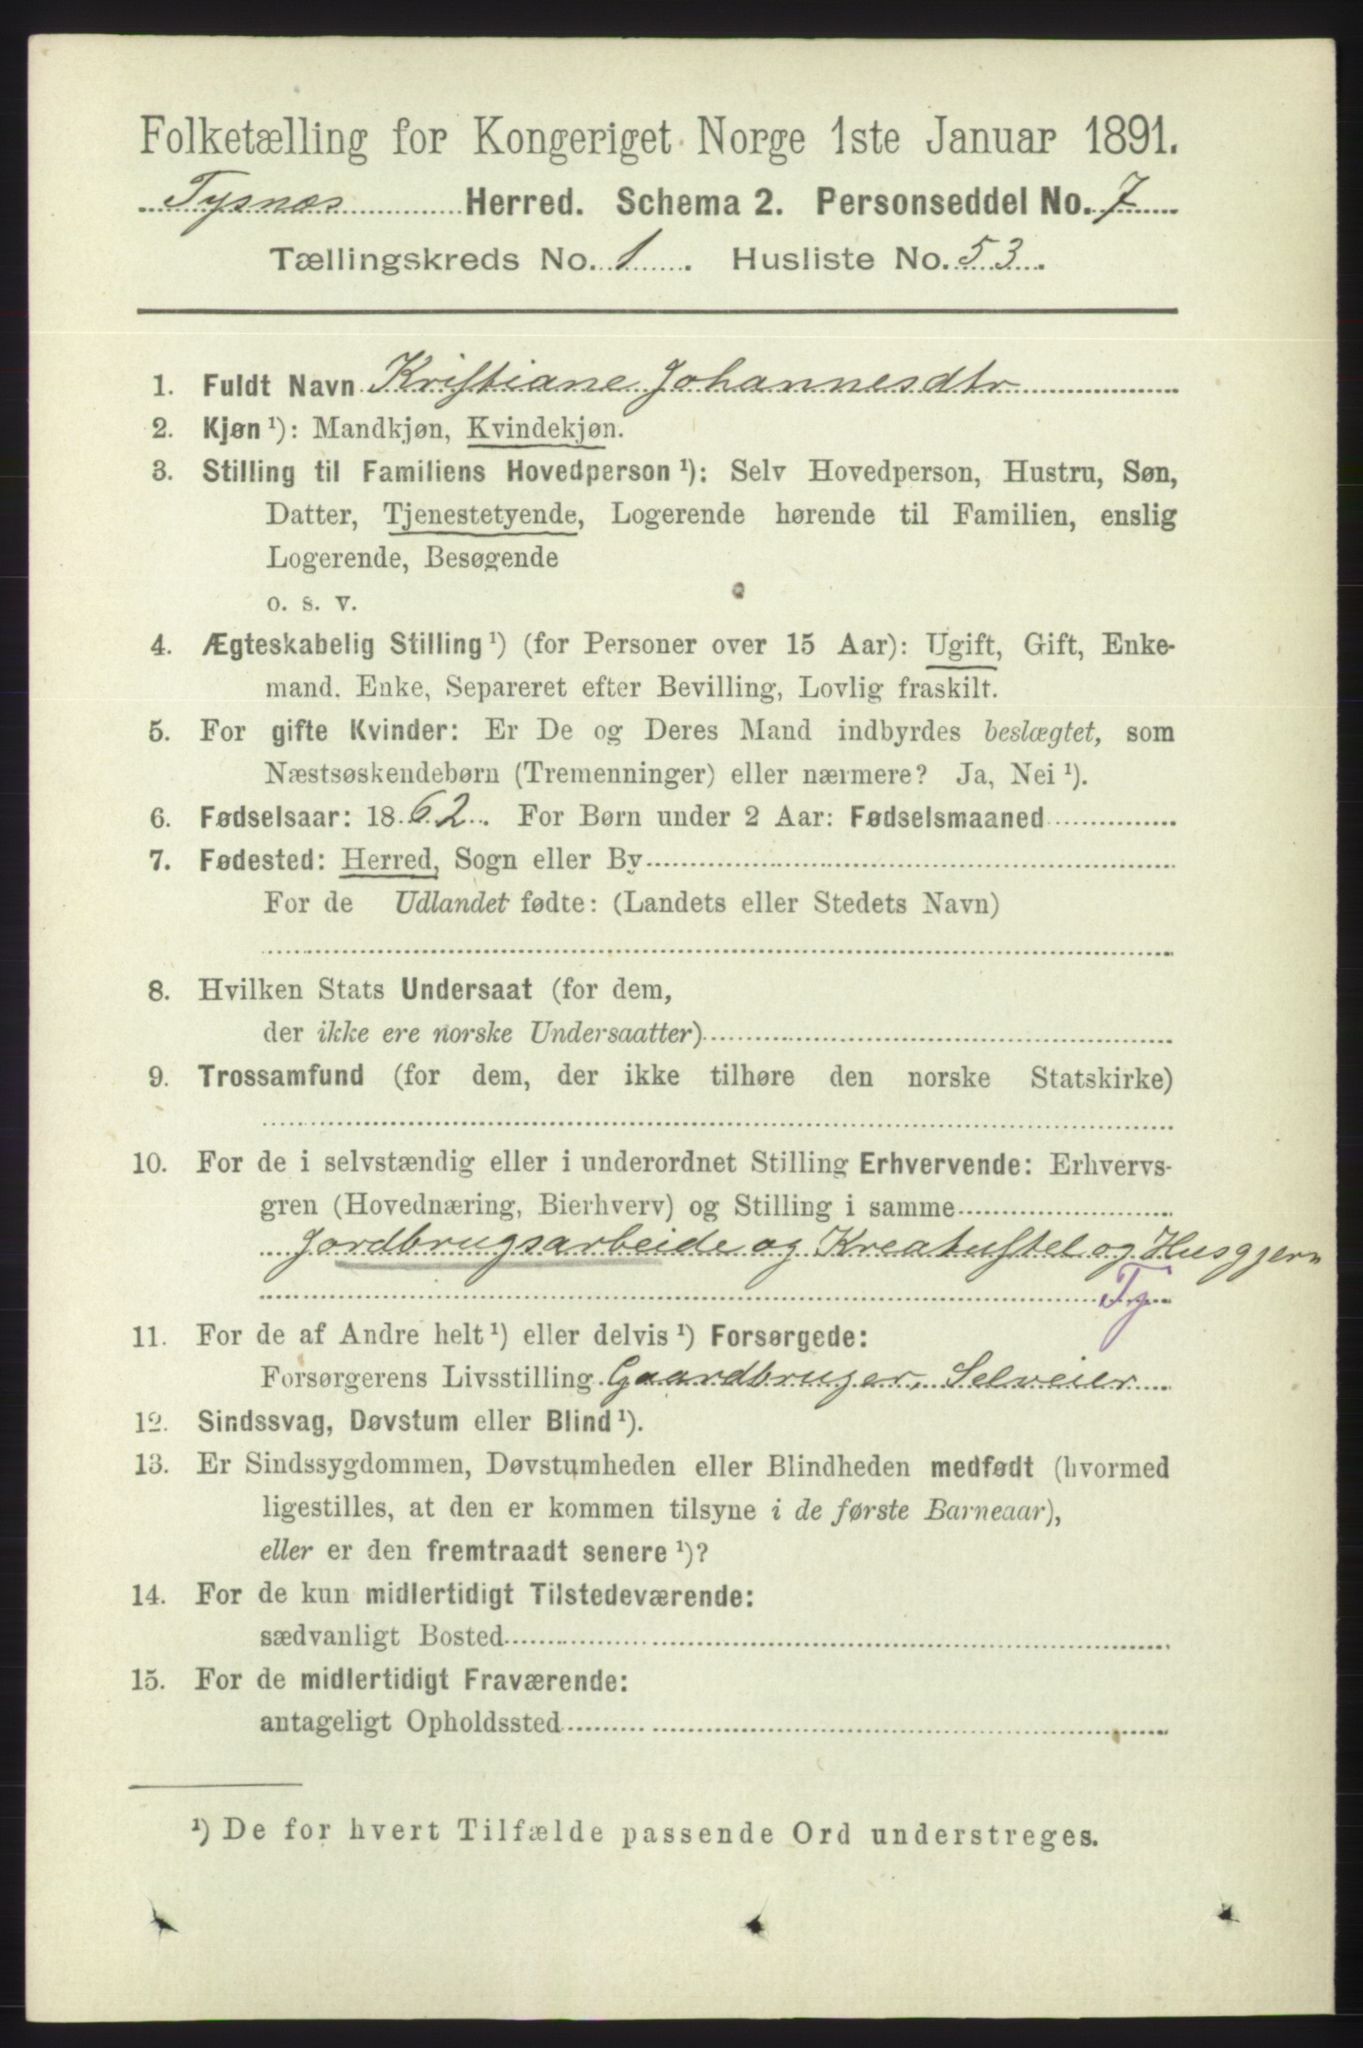 Folketælling for Kongeriget Norge 1ste Januar 1891.
Tysnæs Herred. Schema 2. Personseddel No. 7
Tællingskreds No. 1. Husliste No. 53.
1. Fuldt Navn Kristiane Johannesdtr
2. Kjøn ¹): Mandkjøn, Kvindekjøn.
3. Stilling til Familiens Hovedperson ¹): Selv Hovedperson, Hustru, Søn,
Datter, Tjenestetyende, Logerende hørende til Familien, enslig
Logerende, Besøgende
o. s. v.
4. Ægteskabelig Stilling ¹) (for Personer over 15 Aar): Ugift, Gift, Enke-
mand. Enke, Separeret efter Bevilling, Lovlig fraskilt.
5. For gifte Kvinder: Er De og Deres Mand indbyrdes beslægtet, som
Næstsøskendebørn (Tremenninger) eller nærmere? Ja, Nei ¹).
6. Fødselsaar: 1862. For Børn under 2 Aar: Fødselsmaaned
7. Fødested: Herred, Sogn eller By
For de Udlandet fødte: (Landets eller Stedets Navn)
8. Hvilken Stats Undersaat (for dem,
der ikke ere norske Undersaatter)
9. Trossamfund (for dem, der ikke tilhøre den norske Statskirke)
10. For de i selvstændig eller i underordnet Stilling Erhvervende: Erhvervs-
gren (Hovednæring, Bierhverv) og Stilling i samme
Jordbrugsarbeide og Kreatustel og Husgjern
Tj
11. For de af Andre helt ¹) eller delvis ¹) Forsørgede:
Forsørgerens Livsstilling Gaardbruger, Selveier
12. Sindssvag, Døvstum eller Blind ¹).
13. Er Sindssygdommen, Døvstumheden eller Blindheden medfødt (hvormed
ligestilles, at den er kommen tilsyne i de første Barneaar),
eller er den fremtraadt senere ¹)?
14. For de kun midlertidigt Tilstedeværende:
sædvanligt Bosted
15. For de midlertidigt Fraværende:
antageligt Opholdssted
¹) De for hvert Tilfælde passende Ord understreges.